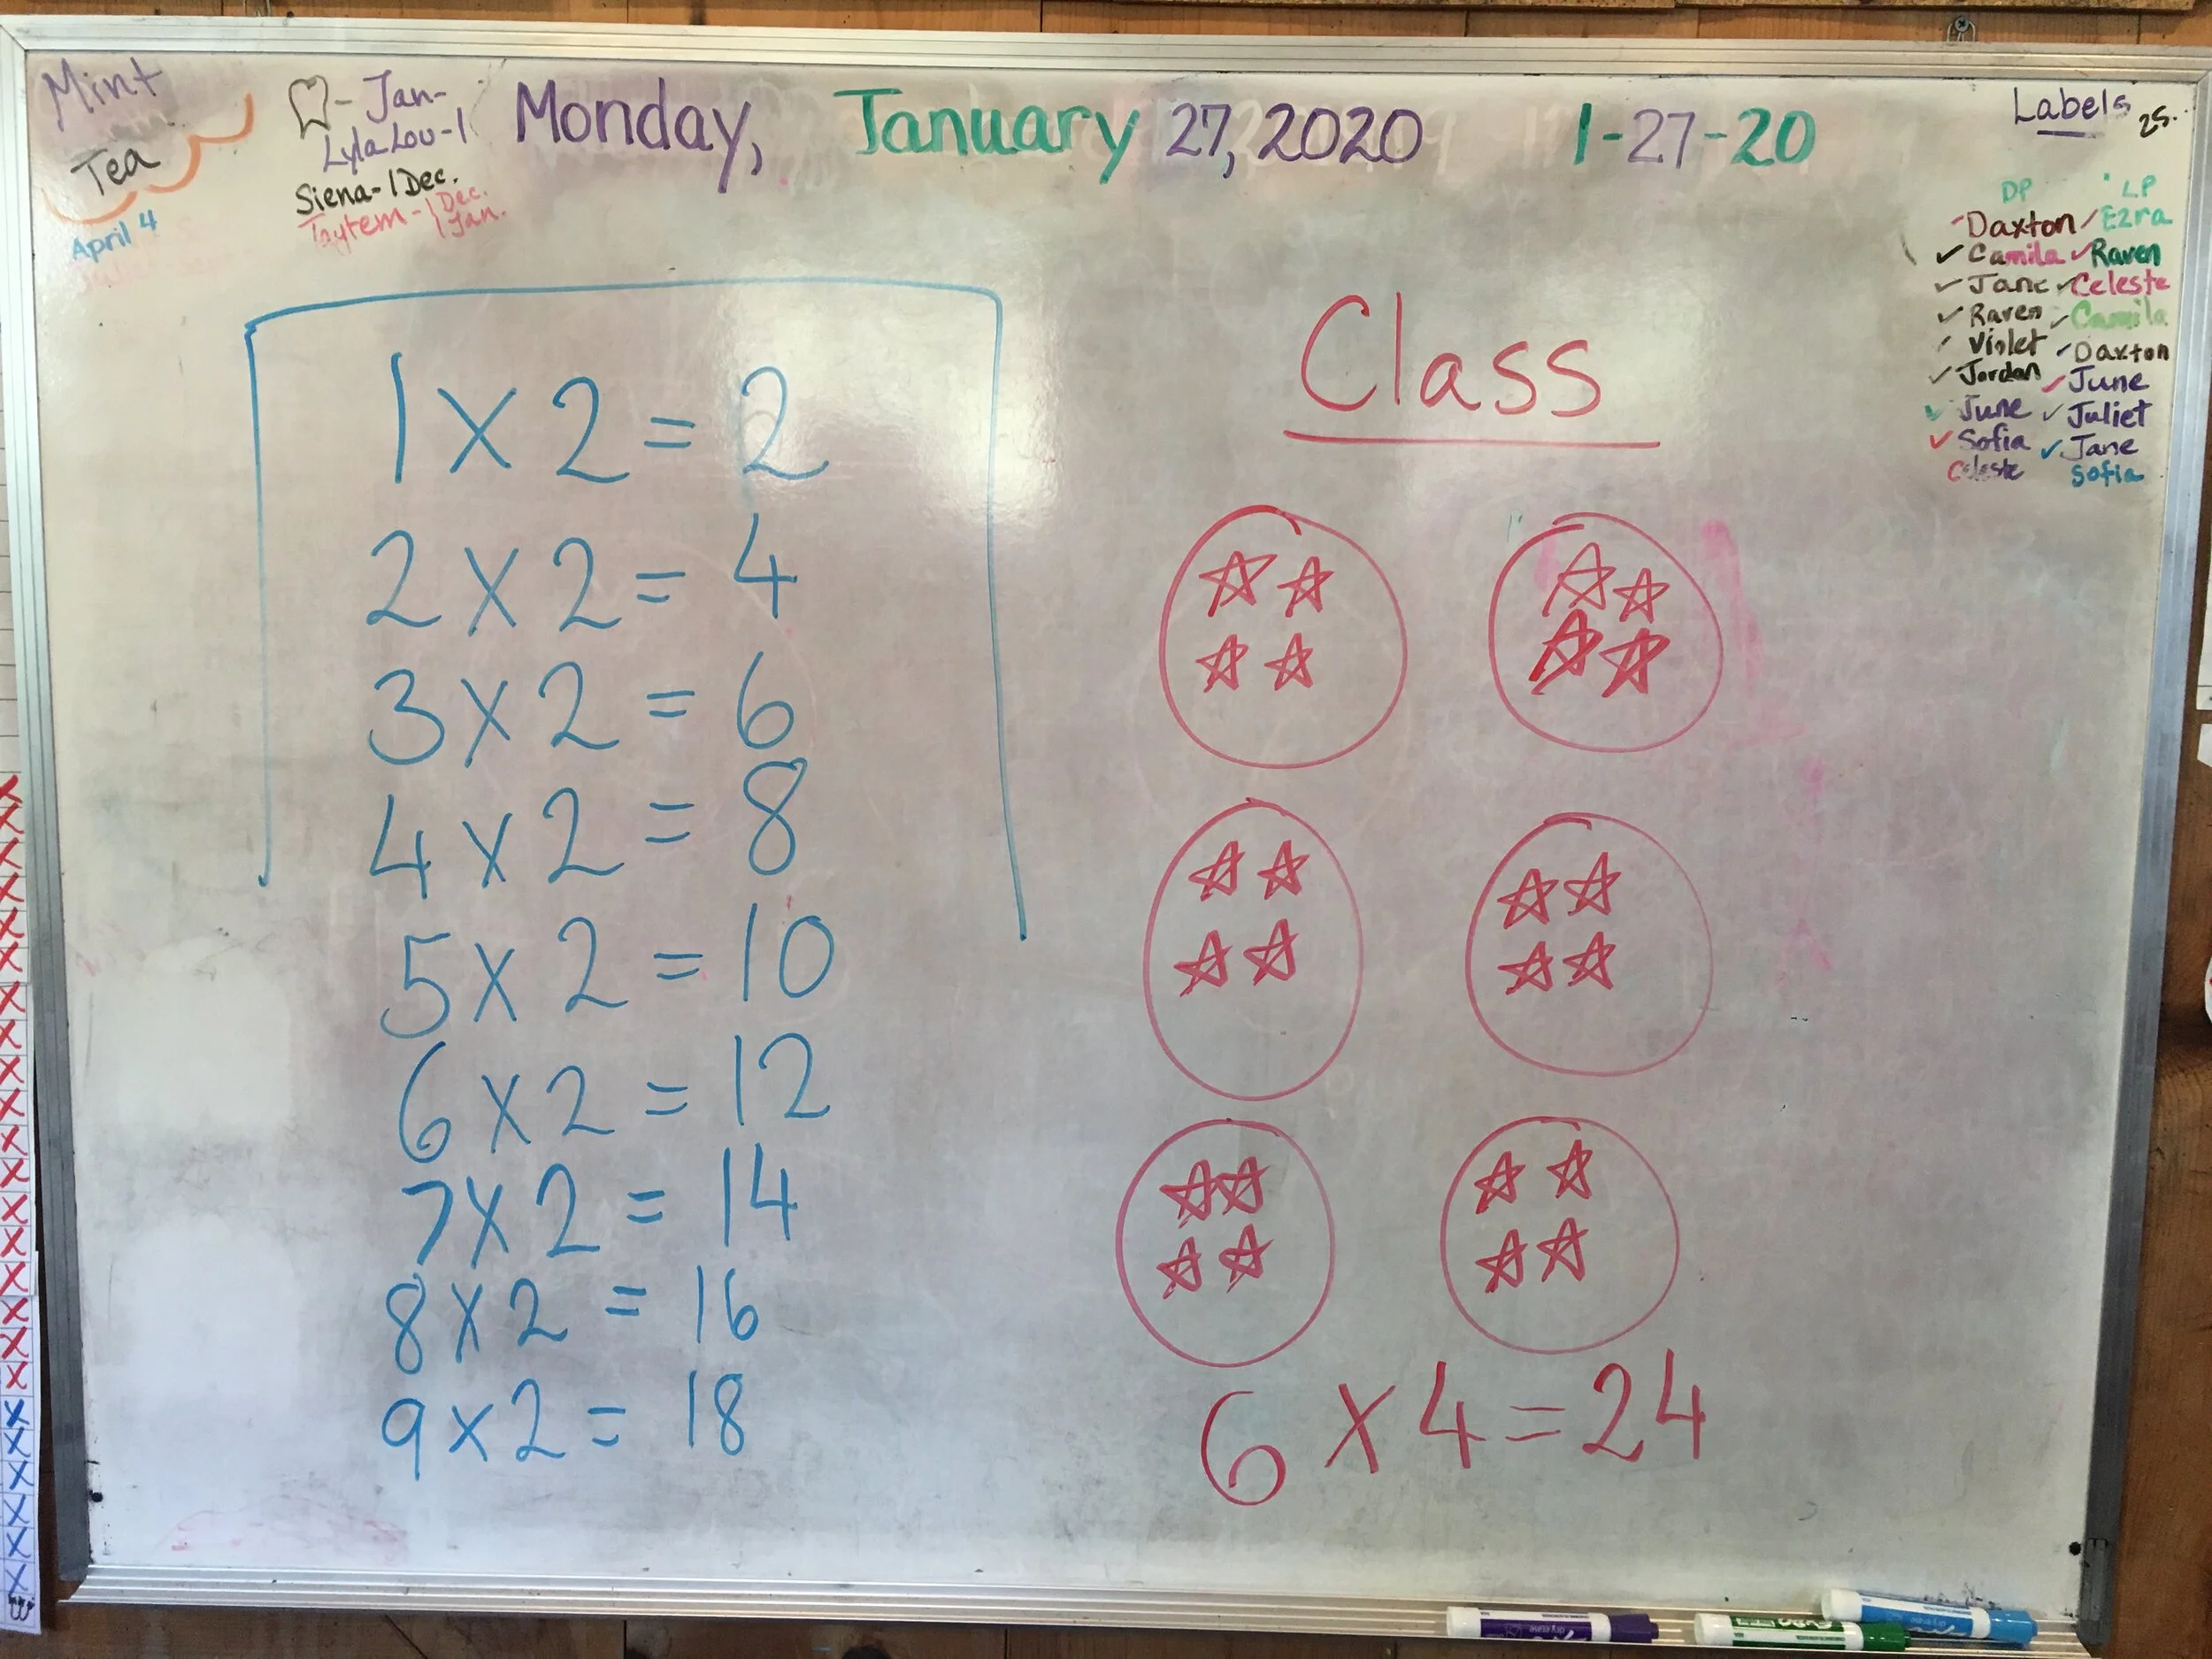 Mint
Tea
April 4
- Jan-
Lyla Lou-1
Siena-1 Dec.
Taytem-1 Dec.
1 Jan.
Monday, January 27, 2020 1-27-20
Labels 25.
DP LP
Daxton Ezra
Camila Raven
Jane Celeste
Raven Camila
Violet Daxton
Jordan June
June Juliet
Sofia Jane
Celeste Sofia
1 x 2 = 2
2 x 2 = 4
3 x 2 = 6
4 x 2 = 8
5 x 2 = 10
6 x 2 = 12
7 x 2 = 14
8 x 2 = 16
9 x 2 = 18
Class
6 x 4 = 24